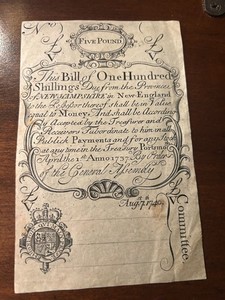 FIVE POUND
This Bill of One Hundred
Shillings Due from the Province
of NEW HAMPSHIRE in New England
to the Possessor thereof shall be in Value
equal to Money And shall be Accordingly
Accepted by the Treasurer and
Receivers Subordinate to him in all
Publick Payments and for any Stock
at any time in the Treasury Portsmo
April the 1st Anno 1737 By Order
of the General Assembly
Augt 1740
Committee